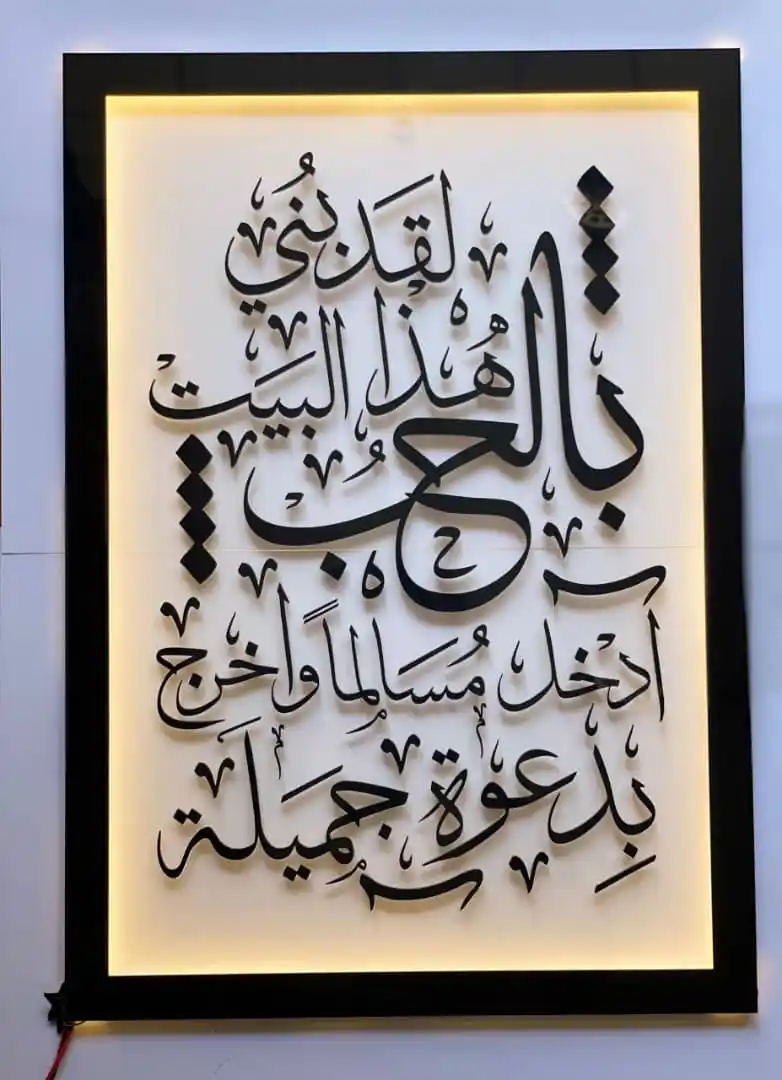 لقد بُني
هٰذا البيت
بالحُب
آدخل مُسالماً واخرج
بِدعوة جميلة